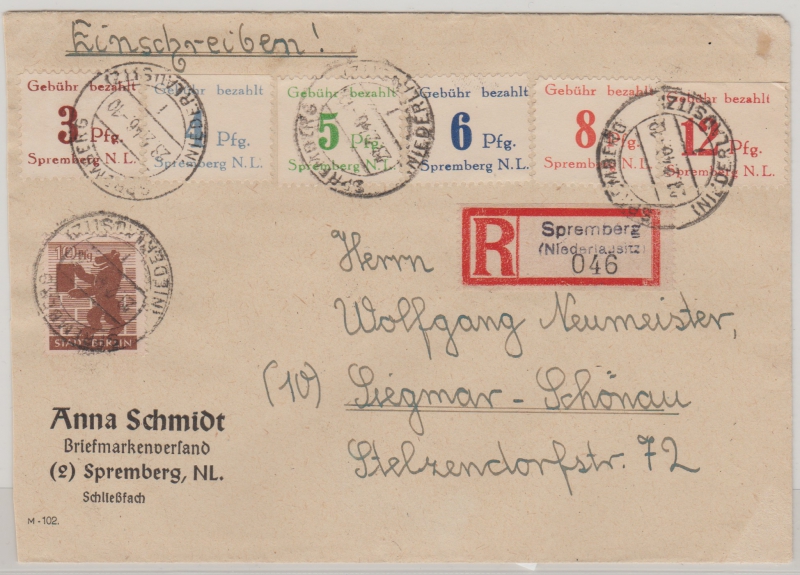 Einschreiben!
Gebühr bezahlt
3 Pfg.
Spremberg N.L.
bezahlt
Pfg.
Spremberg N.L.
Gebühr bezahlt
5 Pfg.
Spremberg N.L.
Gebühr bezahlt
6 Pfg.
Spremberg N.L.
Gebühr bezahlt
8 Pfg.
Spremberg N.L.
Gebühr bezahlt
12 Pfg.
Spremberg N.L.
SPREMBERG
(NIEDERLAUSITZ)
SPREMBERG
(NIEDERLAUSITZ)
SPREMBERG
(NIEDERLAUSITZ)
(NIEDERLAUSITZ)
10 Pfg
STADT BERLIN
R
Spremberg
(Niederlausitz)
046
Herrn
Wolfgang Neumeister,
(10) Siegmar-Schönau
Stelzendorfstr. 72
Anna Schmidt
Briefmarkenversand
(2) Spremberg, NL.
Schließfach
M-102.